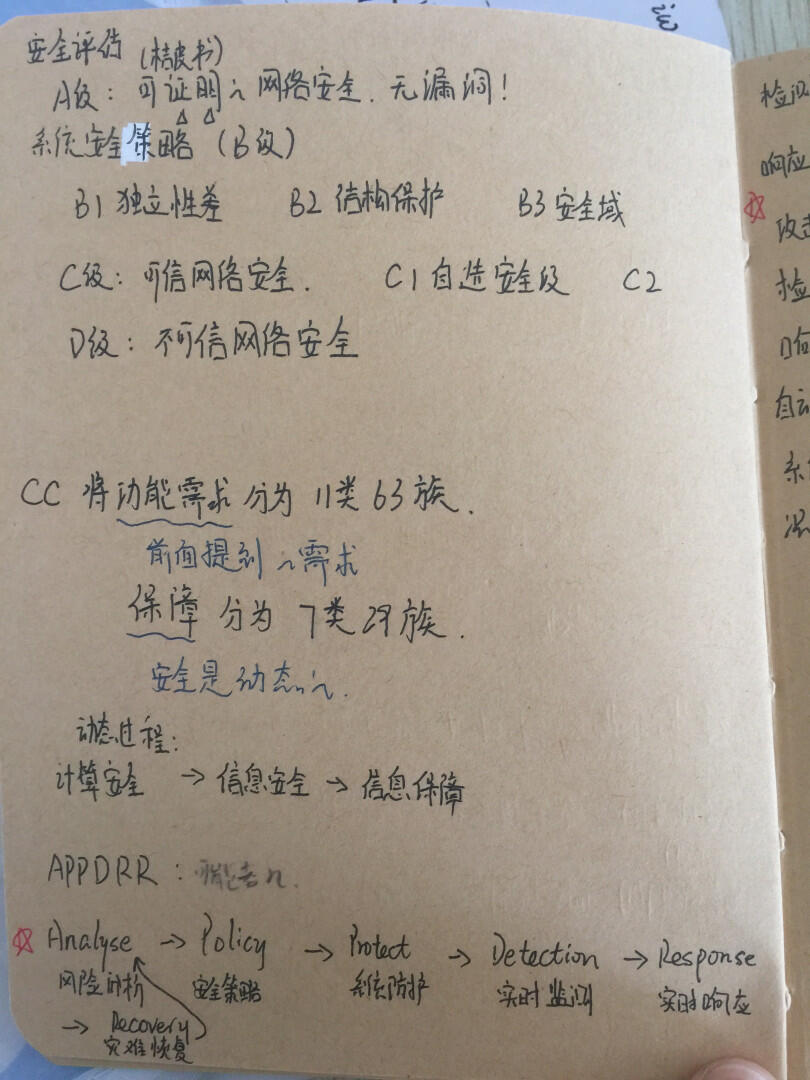 安全评估（桔皮书）
A级：可证明的网络安全．无漏洞！
系统安全策略（B级）
B1 独立性差 B2 结构保护 B3 安全域
C级：可信网络安全． C1 自造安全段 C2
D级：不可信网络安全
CC 将功能需求分为 11类 63族．
前面提到的需求
保障 分为 7类 29族．
安全是动态的．
动态过程：
计算安全 → 信息安全 → 信息保障
APPDRR：
☆ Analyse → Policy → Protect → Detection → Response
风险分析 安全策略 系统防护 实时监测 实时响应
→ Recovery
灾难恢复
检测
响应
☆
攻击
检
自动
系